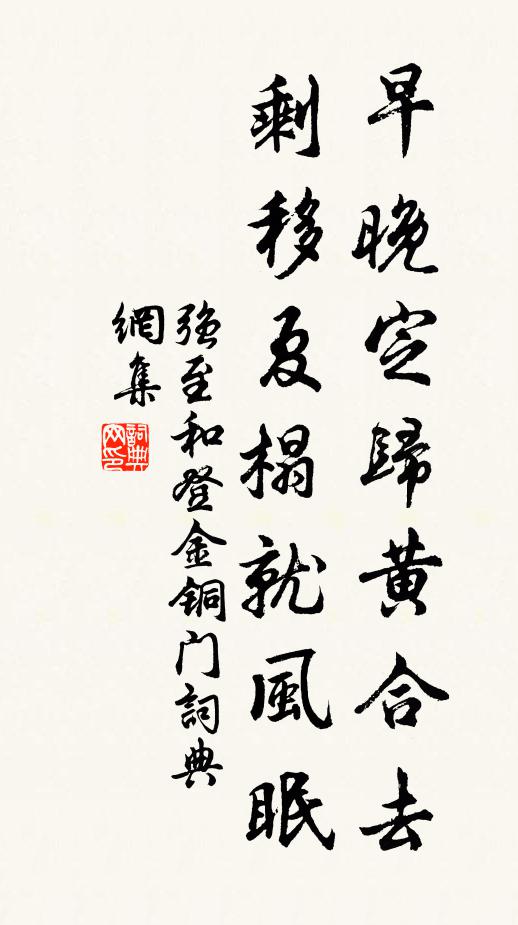 早晚定歸黃合去
剩移夏榻就風眠
强至和登金銅门詞典
網集
詞典
网印